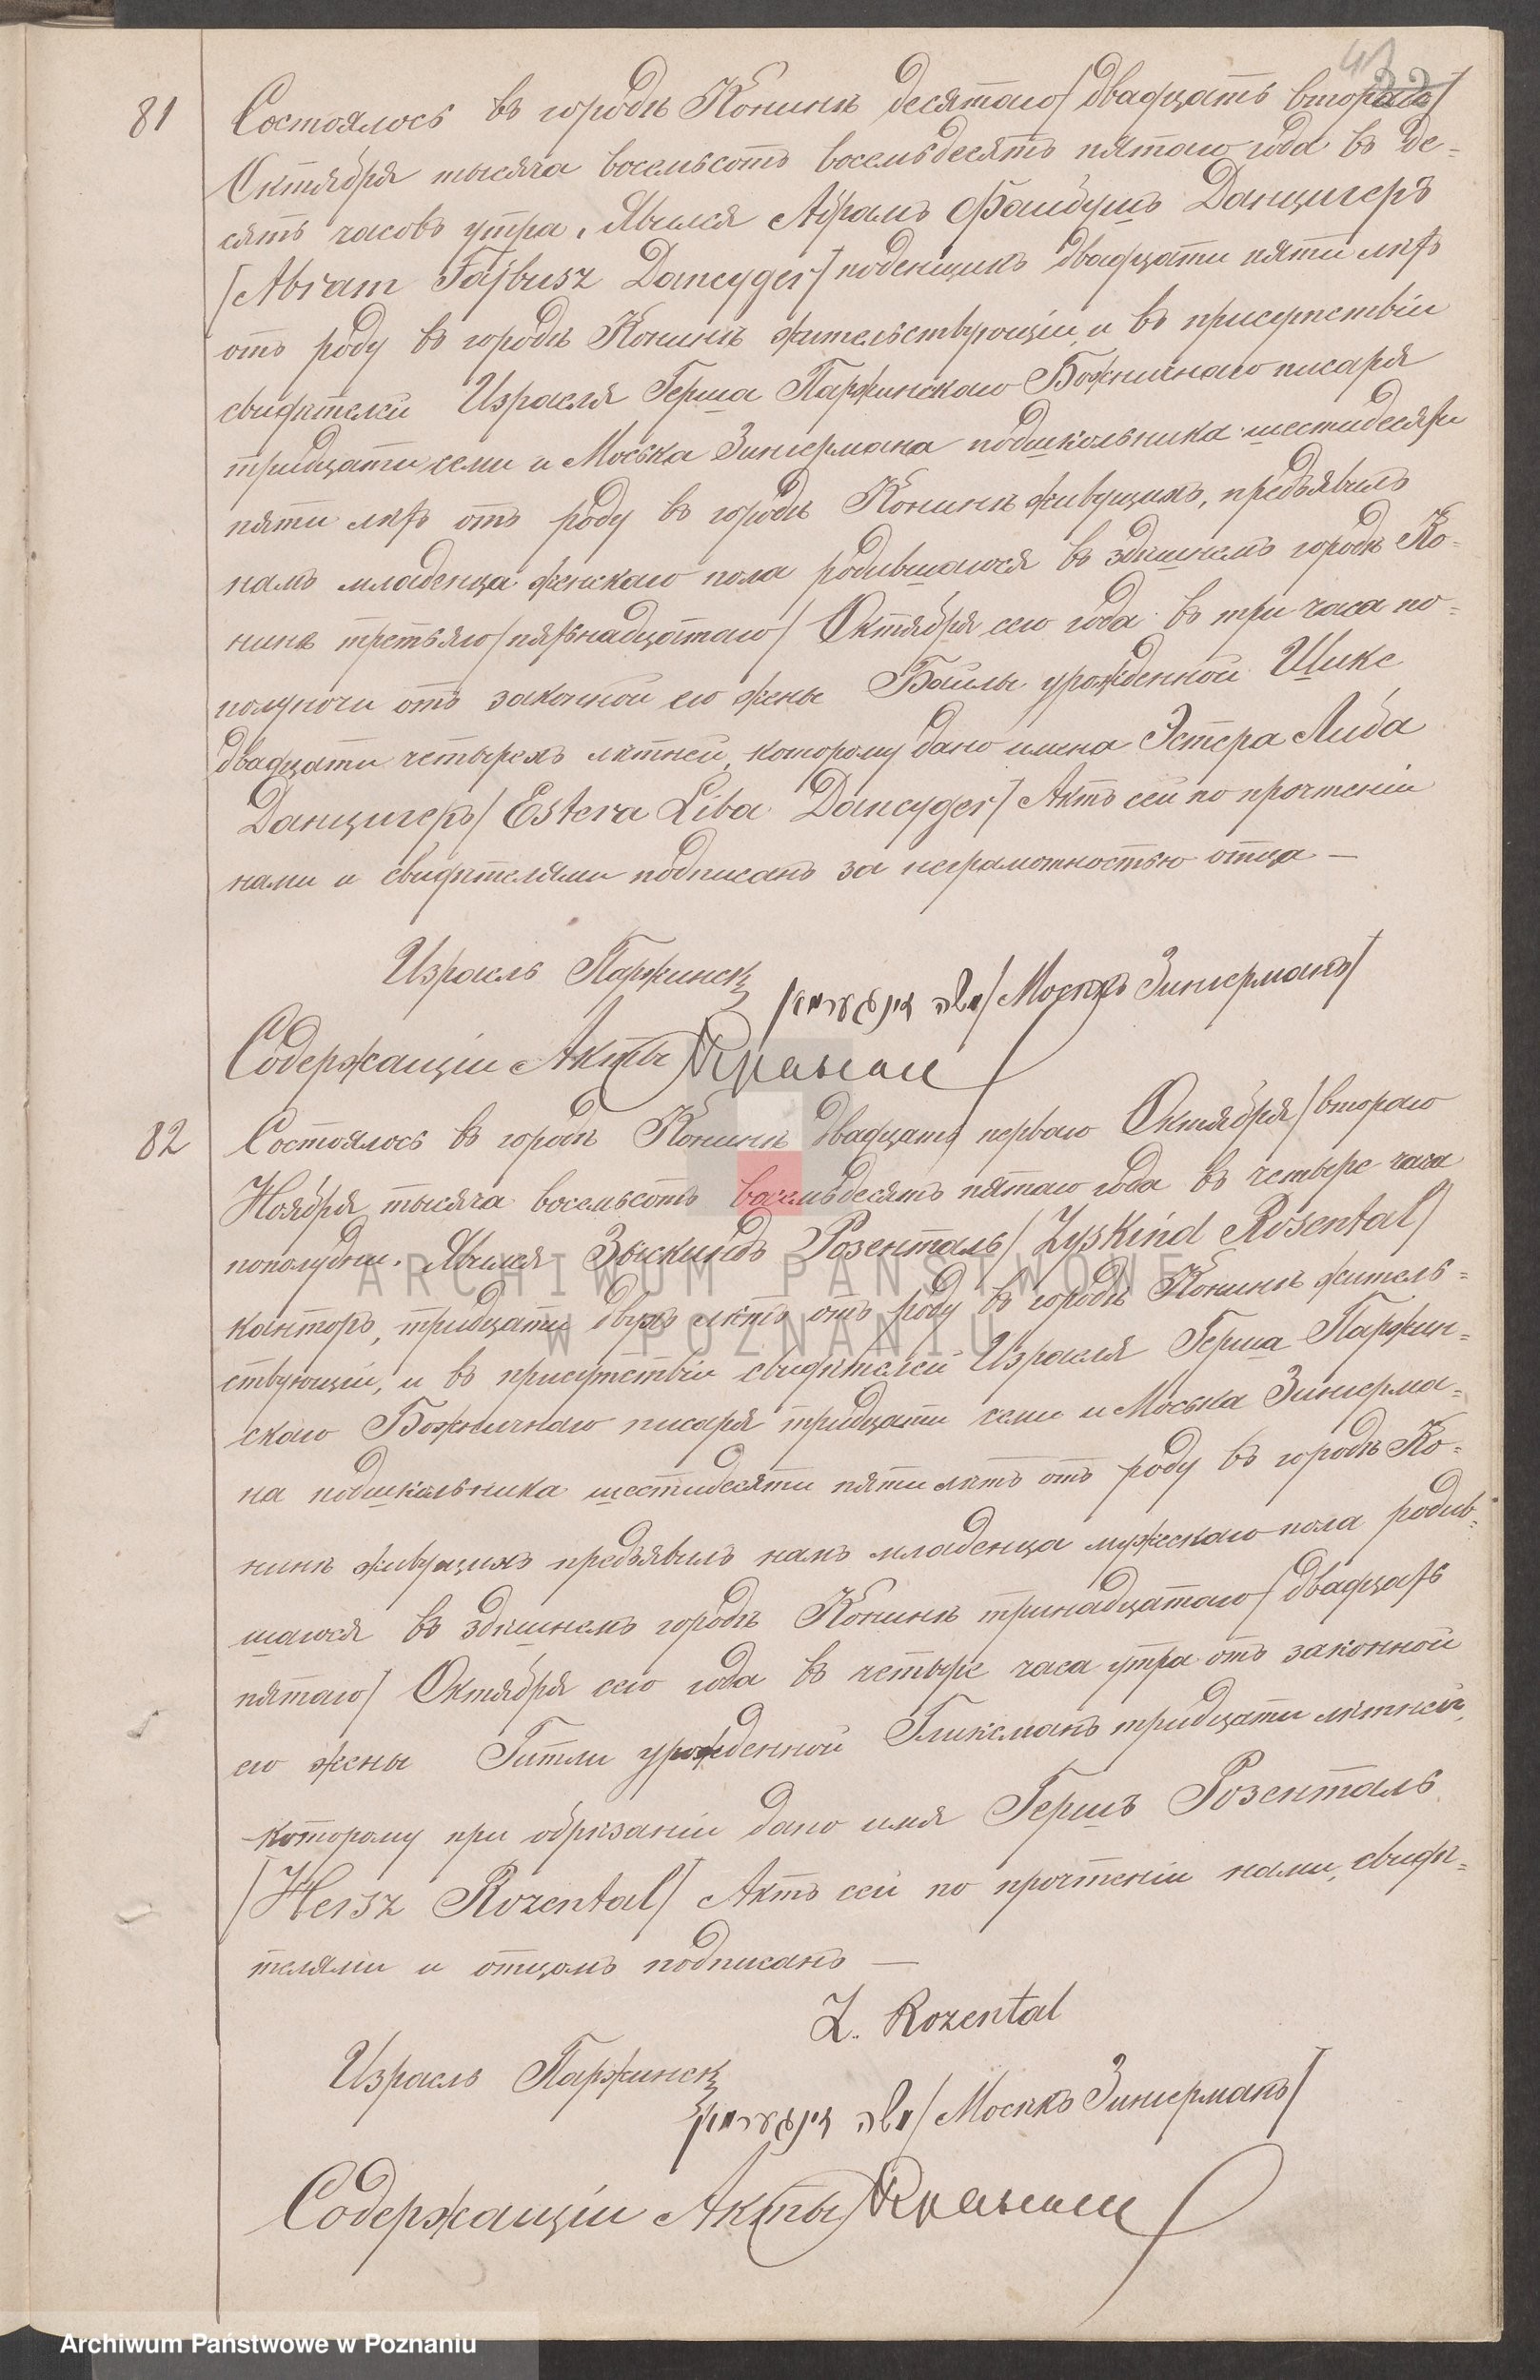 41
22
81
Состоялось въ городѣ Конинѣ десятаго/двадцать втораго/
Октября тысяча восемьсотъ восемьдесятъ пятаго года въ де=
сять часовъ утра. Явился Абрамъ Файбушъ Данцигеръ
/Abram Fajbusz Dancyger/ поденщикъ двадцати пяти лѣтъ
отъ роду въ городѣ Конинѣ жительствующій, и въ присутствіи
свидѣтелей Израеля Герша Паржинскаго Божничнаго писаря
тридцати семи и Моська Зингермана подшкольника шестидесяти
пяти лѣтъ отъ роду въ городѣ Конинѣ живущихъ, предъявилъ
намъ младенца женскаго пола родившагося въ здѣшнемъ городѣ Ко=
нинѣ третьяго/пятьнадцатаго/ Октября сего года въ три часа по=
полуночи отъ законной его жены Байлы урожденной Шикс
двадцати четырехъ лѣтней, которому дано имена Эстера Либа
Данцигеръ/Estera Liba Dancyger/ Актъ сей по прочтеніи
нами и свидѣтелями подписанъ за неграмотностью отца —
Израель Паржинск
משה זינגערמאן /Мосекъ Зингерманъ/
Содержащій Акты
82
Состоялось въ городѣ Конинѣ двадцать перваго Октября/втораго
Ноября тысяча восемьсотъ восемьдесятъ пятаго года въ четыре часа
пополудни. Явился Зыскиндъ Розенталь/Zyskind Rosental/
канторъ, тридцати двухъ лѣтъ отъ роду въ городѣ Конинѣ житель=
ствующій, и въ присутствіи свидѣтелей Израеля Герша Паржин=
скаго Божничнаго писаря тридцати семи и Моська Зингерма=
на подшкольника шестидесяти пяти лѣтъ отъ роду въ городѣ Ко=
нинѣ живущихъ предъявилъ намъ младенца мужескаго пола родив=
шагося въ здѣшнемъ городѣ Конинѣ тринадцатаго/двадцать
пятаго/ Октября сего года въ четыре часа утра отъ законной
его жены Гитли урожденной Гликсманъ тридцати лѣтней,
которому при обрѣзаніи дано имя Гершъ Розенталь
/Hersz Rozental/ Актъ сей по прочтеніи нами, свидѣ=
телями и отцомъ подписанъ —
Z. Rozental
Израель Паржинск
משה זינגערמאן /Мосекъ Зингерманъ/
Содержащій Акты
ARCHIWUM PAŃSTWOWE
W POZNANIU
Archiwum Państwowe w Poznaniu